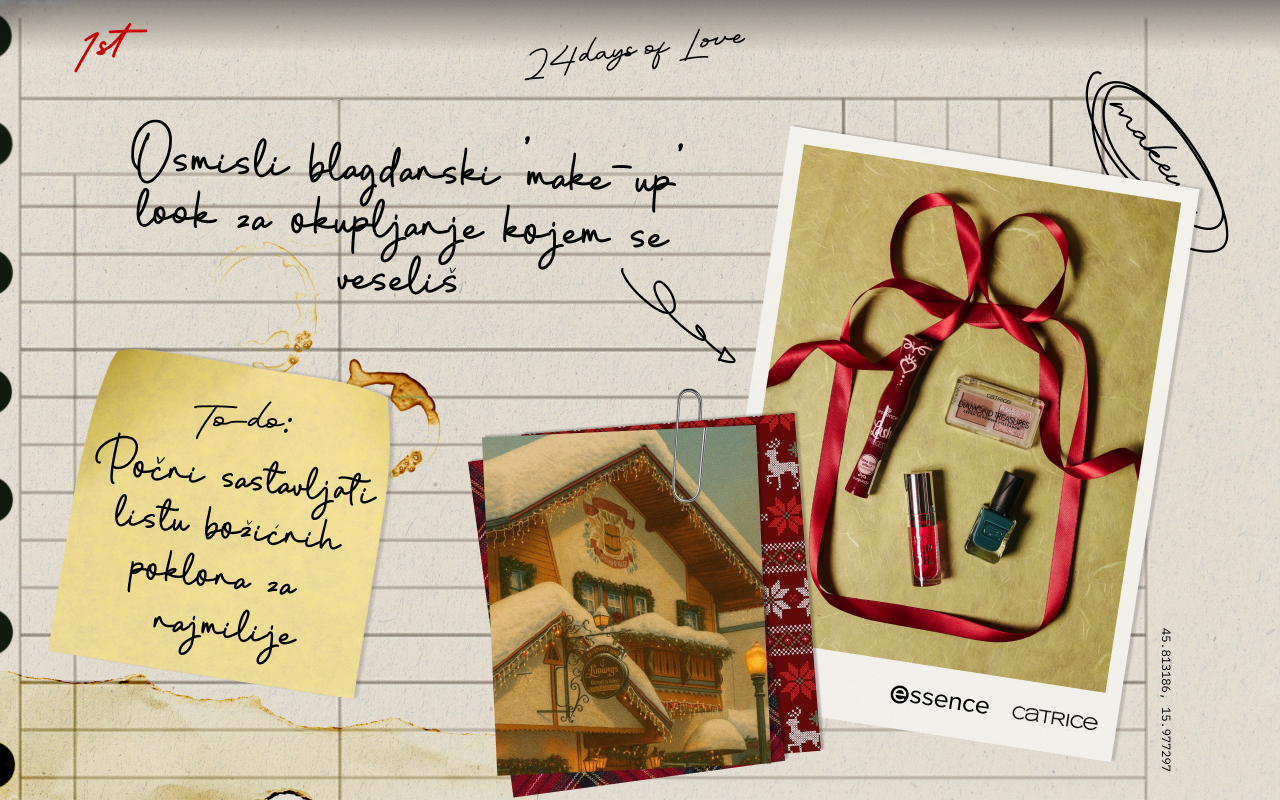 1st
24days of Love
Osmisli blagdanski 'make-up'
look za okupljanje kojem se
veseliš
To-do:
Počni sastavljati
listu božićnih
poklona za
najmilije
Ludwigs
CATRICE
DIAMOND TREASURES
essence
Lash
essence
CATRICE
45.813186, 15.977297